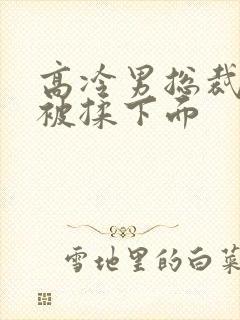 高冷男总裁
被揉下而
雪地里的白菜